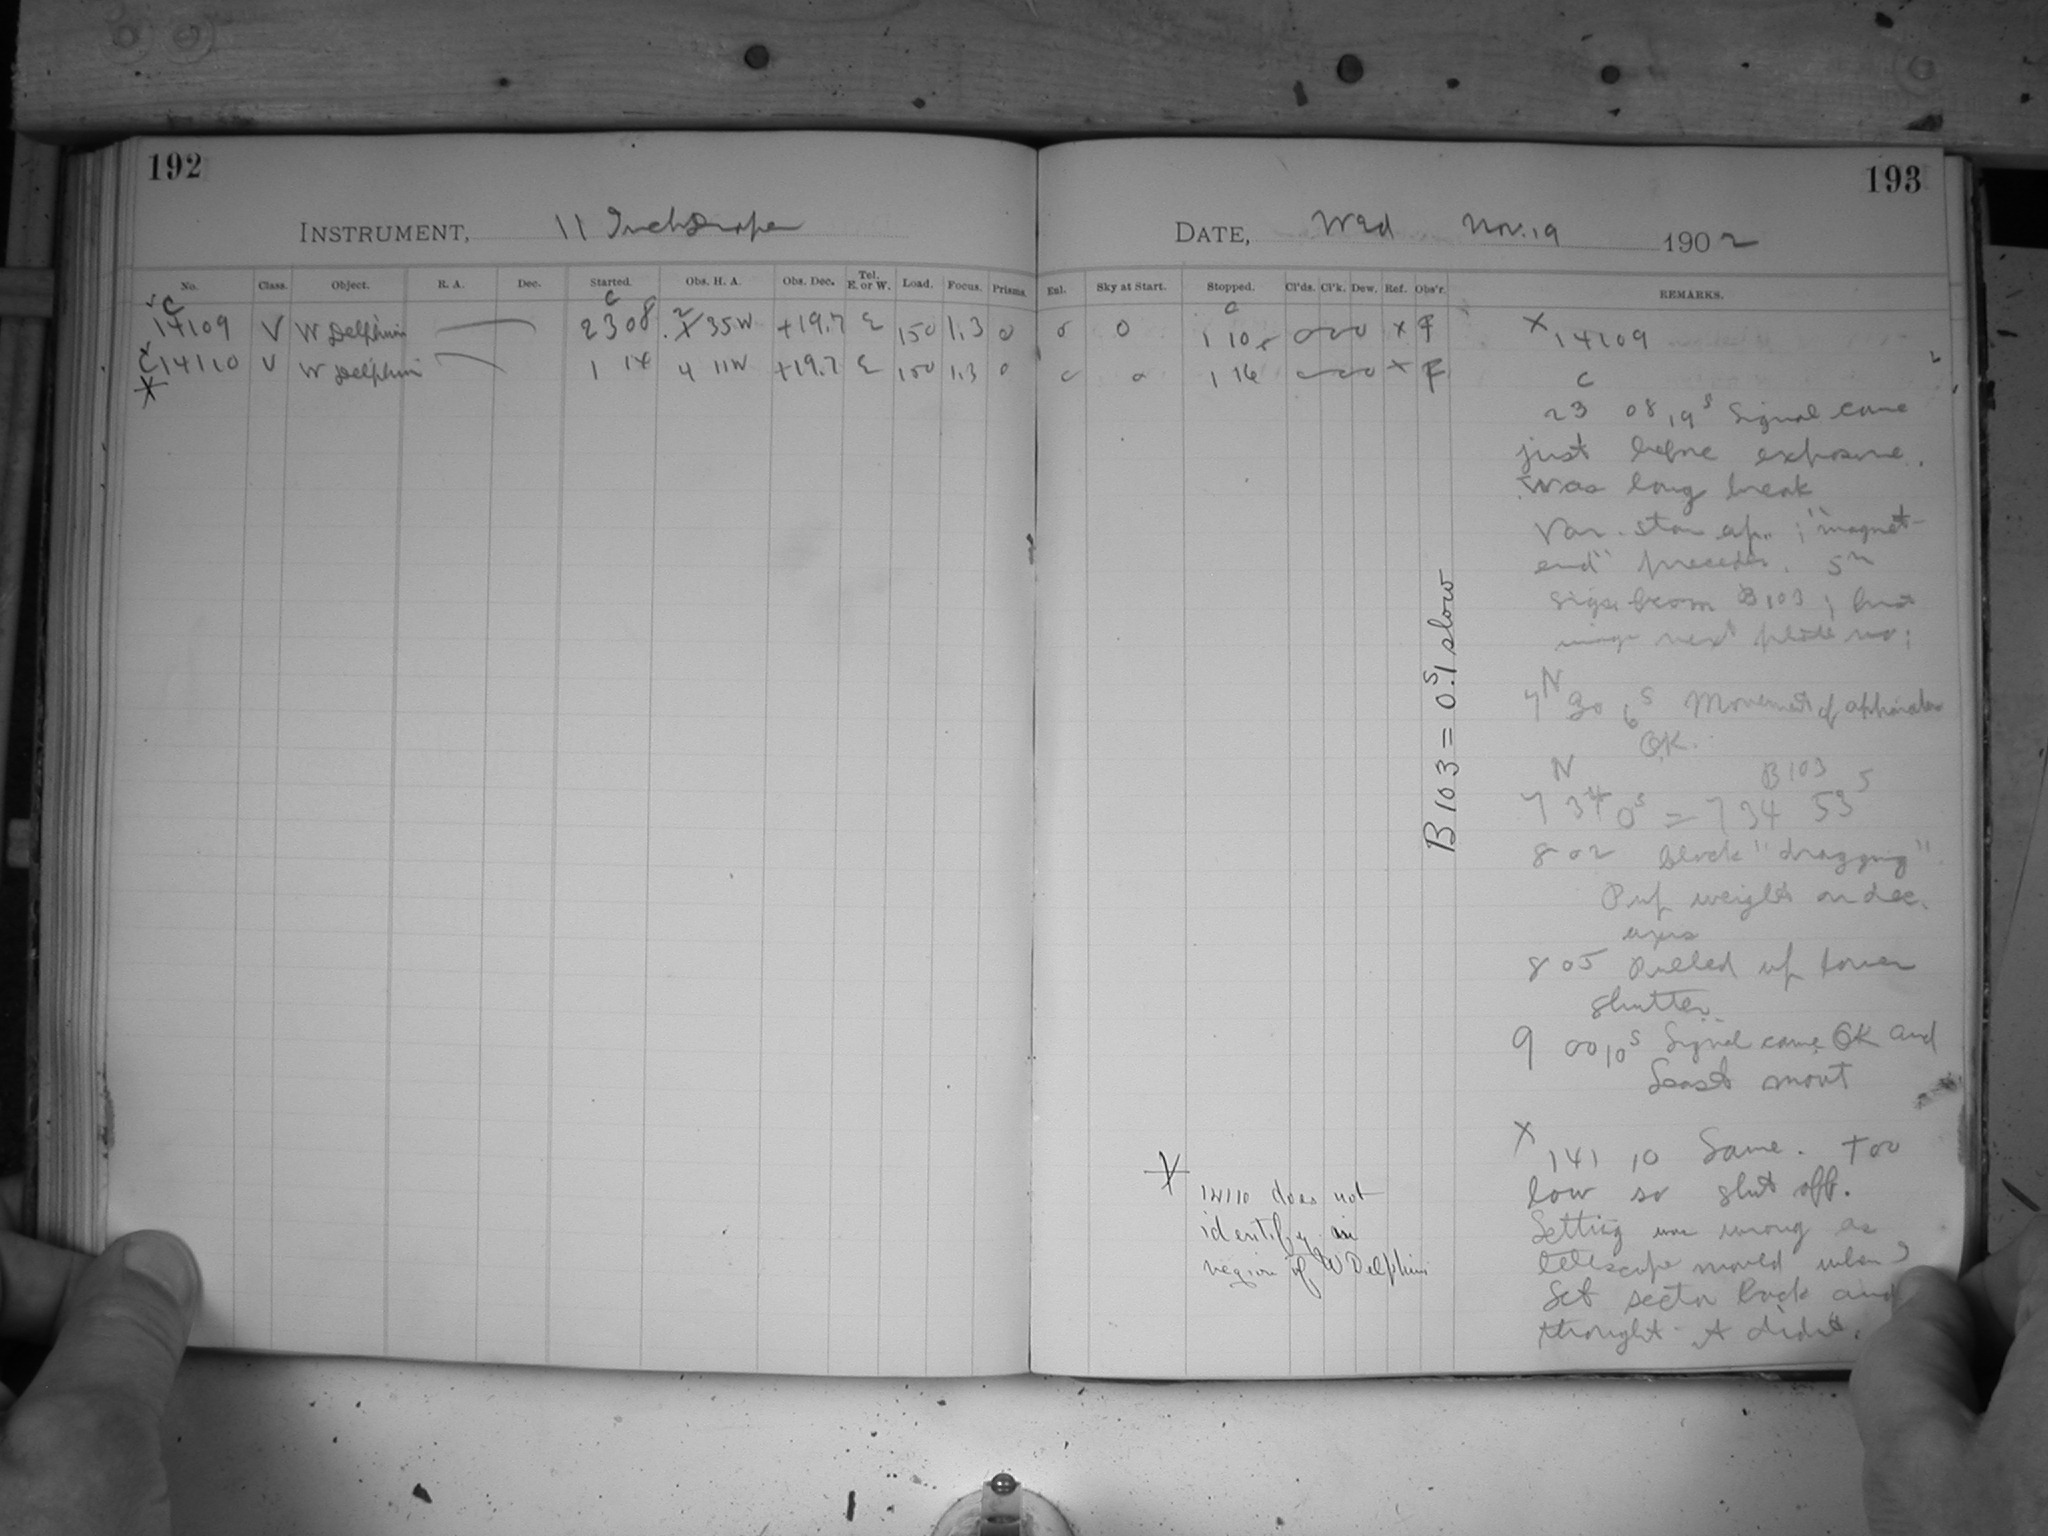 192
193
INSTRUMENT, 11 Inch Draper
DATE, Wed Nov. 19 1902
No. Class. Object. R. A. Dec. Started. Obs. H. A. Obs. Dec. Tel. E. or W. Load. Focus. Prisms.
Exl. Sky at Start. Stopped. Cl'ds. Cl'k. Dew. Ref. Obs'r. REMARKS.
C C
14109 V W Delphini 23 08 2 35 W +19.7 E 150 1.3 0
0 0 1 10 0 0 0 x F
C 14110 V W Delphini 1 14 4 11 W +19.7 E 150 1.3 0
1 16 x F
X 14109
C
23 08 19s Signal came
just before exposure.
Was long break
Var. star ap. ; "magnet-
end" precedes. 5m
sigs. from B103 ;
next plate no ;
N
7 30 6s Movement of apparatus
OK.
N B103
7 34 0s = 7 34 53s
8 02 Clock "dragging".
Put weights on dec.
axis
8 05 Pulled up lower
shutter.
9 00 10s Signal came OK and
mont
B 103 = 0s.1 slow
X 14110 Same. Too
low so shut off.
Setting was wrong as
telescope moved when I
set sector back and
thought it didn't.
14110 does not
identify in
region of W Delphini